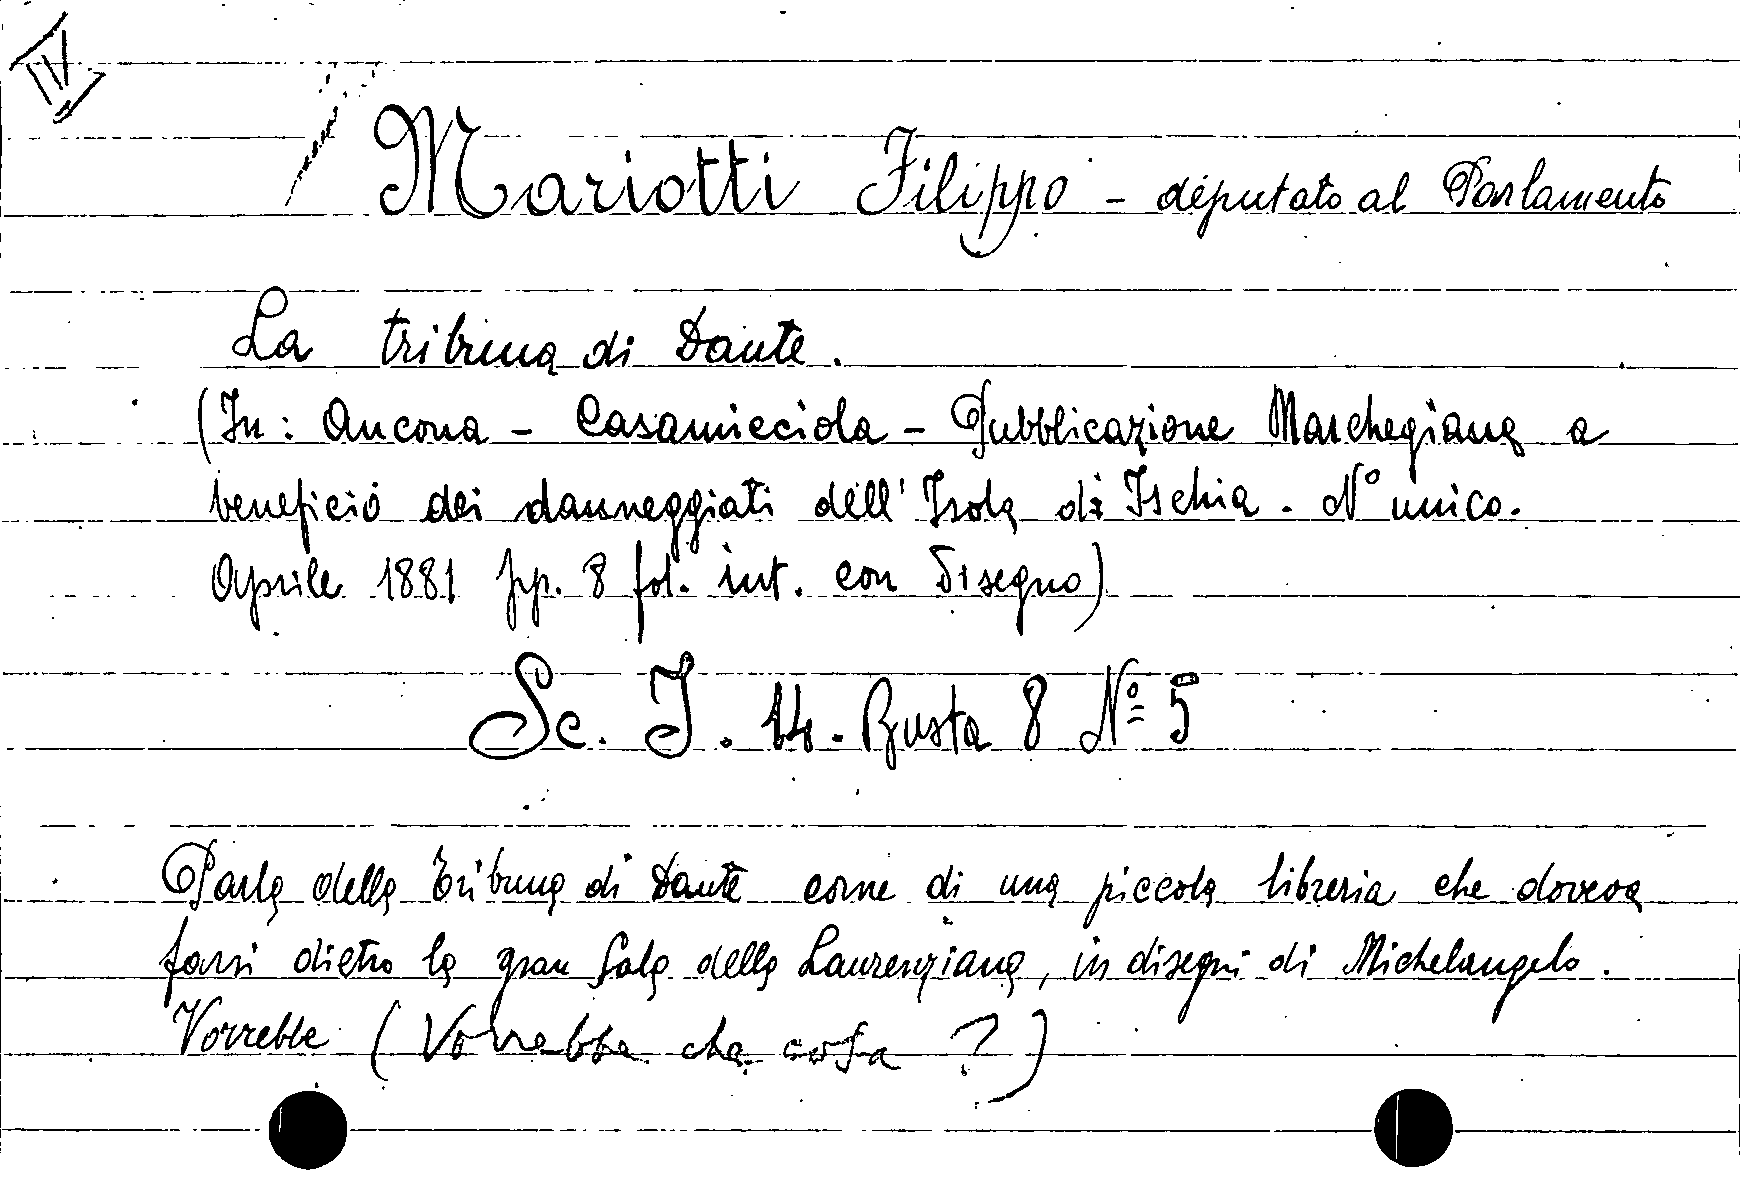 IV
Mariotti Filippo - deputato al Parlamento
La tribuna di Dante.
(In: Ancona - Casamicciola - Pubblicazione Marchegiana a
beneficio dei danneggiati dell'Isola di Ischia. N° unico.
Aprile 1881 pp. 8 fol. int. con disegno)
Sc. I. 14. Busta 8 Nº 5
Parla della tribuna di Dante come di una piccola libreria che doveva
farsi dietro la gran Sala della Laurenziana, in disegni di Michelangelo.
Vorrebbe (Vorrebbe che cosa ?)